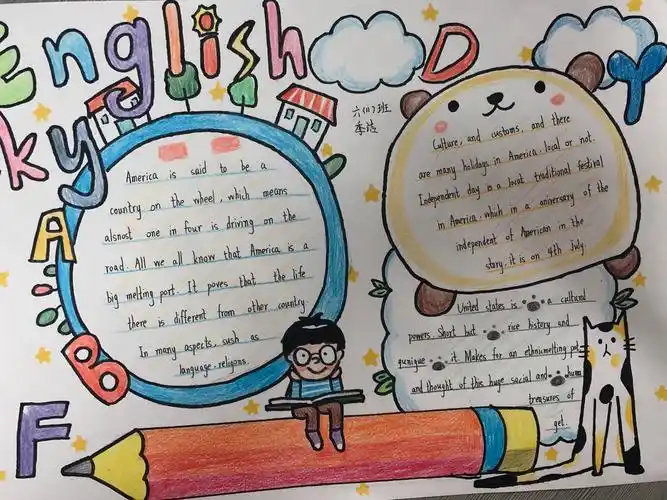 English
D Y
ky
A
B
F
六(1)班
李洁
America is said to be a
country on the wheel, which means
alsnost one in four is driving on the
road. All we all know that America is a
big melting port. It poves that the life
there is different from other country.
In many aspects, sush as
language.religions.
Culture, and customs, and there
are many holidays in America. local or not.
Independent day is a locat traditional festival
in America, which in a aniversary of the
independent of American in the
story. it is on 4th July
United states is a cultural
powers. Short but rice history and
qunique it. Makes for an ethnicmelting pot
and thought of this huge social and hum
treasures of
get.